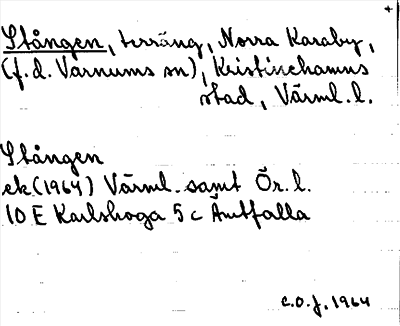 Stången, terräng, Norra Karaby,
(f.d. Varnums sn), Kristinehamns
stad, Värml.l.
Stången
ek(1964) Värml. samt Ör.l.
10 E Karlskoga 5c Åmtfalla
C.O.J. 1964